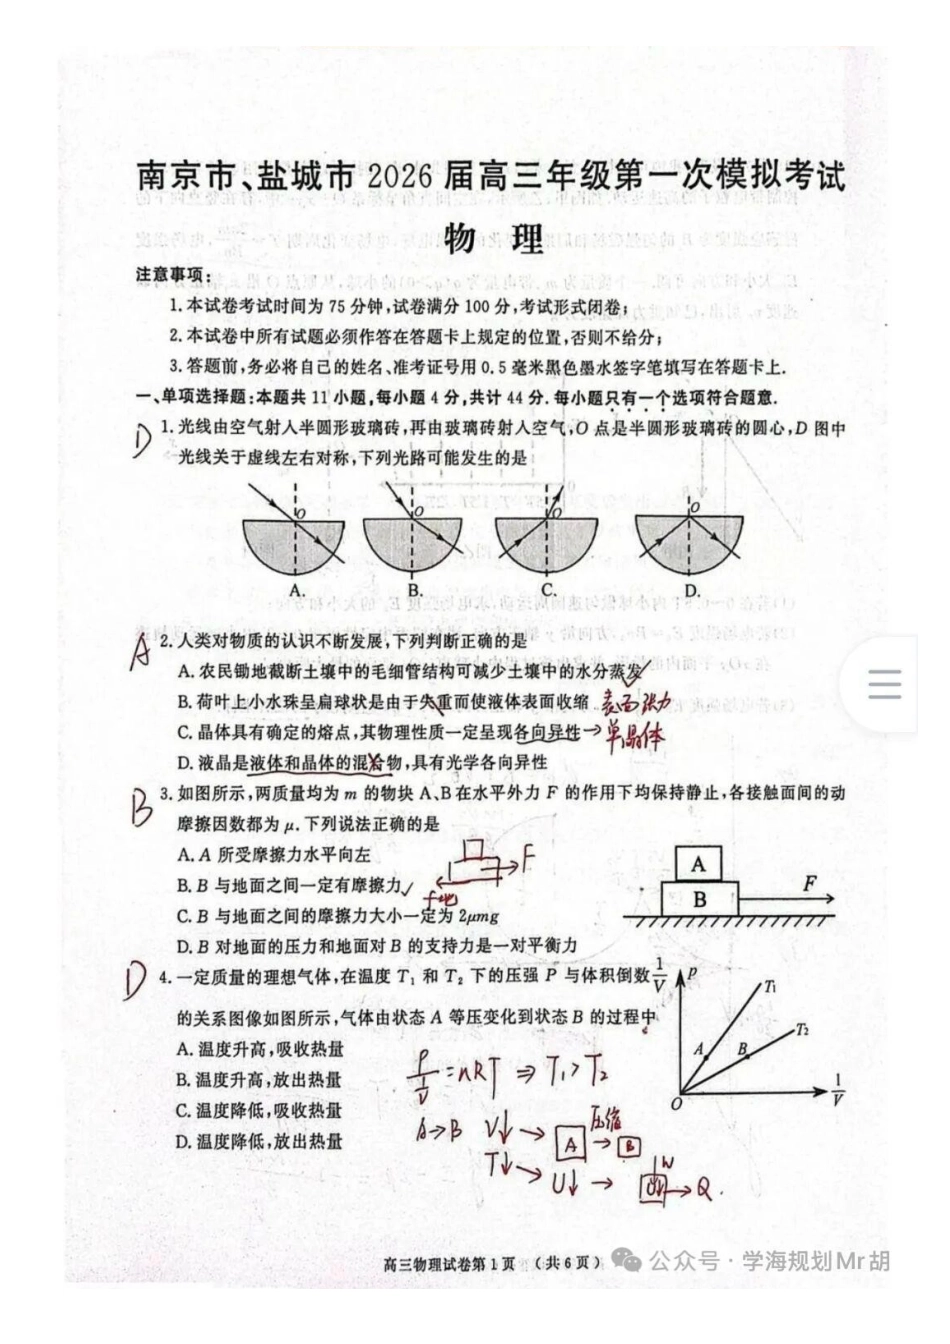 南京市、盐城市 2026 届高三年级第一次模拟考试
物 理
注意事项:
1.本试卷考试时间为 75 分钟,试卷满分 100 分,考试形式闭卷;
2.本试卷中所有试题必须作答在答题卡上规定的位置,否则不给分;
3.答题前,务必将自己的姓名、准考证号用 0.5 毫米黑色墨水签字笔填写在答题卡上.
一、单项选择题:本题共 11 小题,每小题 4 分,共计 44 分.每小题只有一个选项符合题意.
D 1.光线由空气射入半圆形玻璃砖,再由玻璃砖射入空气,O 点是半圆形玻璃砖的圆心,D 图中
光线关于虚线左右对称,下列光路可能发生的是
O O O O
A. B. C. D.
A 2.人类对物质的认识不断发展,下列判断正确的是
A.农民锄地截断土壤中的毛细管结构可减少土壤中的水分蒸发
B.荷叶上小水珠呈扁球状是由于失重而使液体表面收缩 表面张力
C.晶体具有确定的熔点,其物理性质一定呈现各向异性→单晶体
D.液晶是液体和晶体的混合物,具有光学各向异性
B 3.如图所示,两质量均为 m 的物块 A、B 在水平外力 F 的作用下均保持静止,各接触面间的动
摩擦因数都为 μ.下列说法正确的是
A.A 所受摩擦力水平向左
B.B 与地面之间一定有摩擦力✓
C.B 与地面之间的摩擦力大小一定为 2μmg
D.B 对地面的压力和地面对 B 的支持力是一对平衡力
F
f地
A
B
F
D 4.一定质量的理想气体,在温度 T₁ 和 T₂ 下的压强 P 与体积倒数 1/V
的关系图像如图所示,气体由状态 A 等压变化到状态 B 的过程中
A.温度升高,吸收热量
B.温度升高,放出热量
C.温度降低,吸收热量
D.温度降低,放出热量
p
T₁
T₂
A B
O
1/V
p/(1/V) = nRT ⇒ T₁>T₂
A→B V↓ → A 压缩→ B
T↓ → U↓ → U↓ W → Q.
高三物理试卷第 1 页 (共 6 页)
公众号 · 学海规划Mr胡